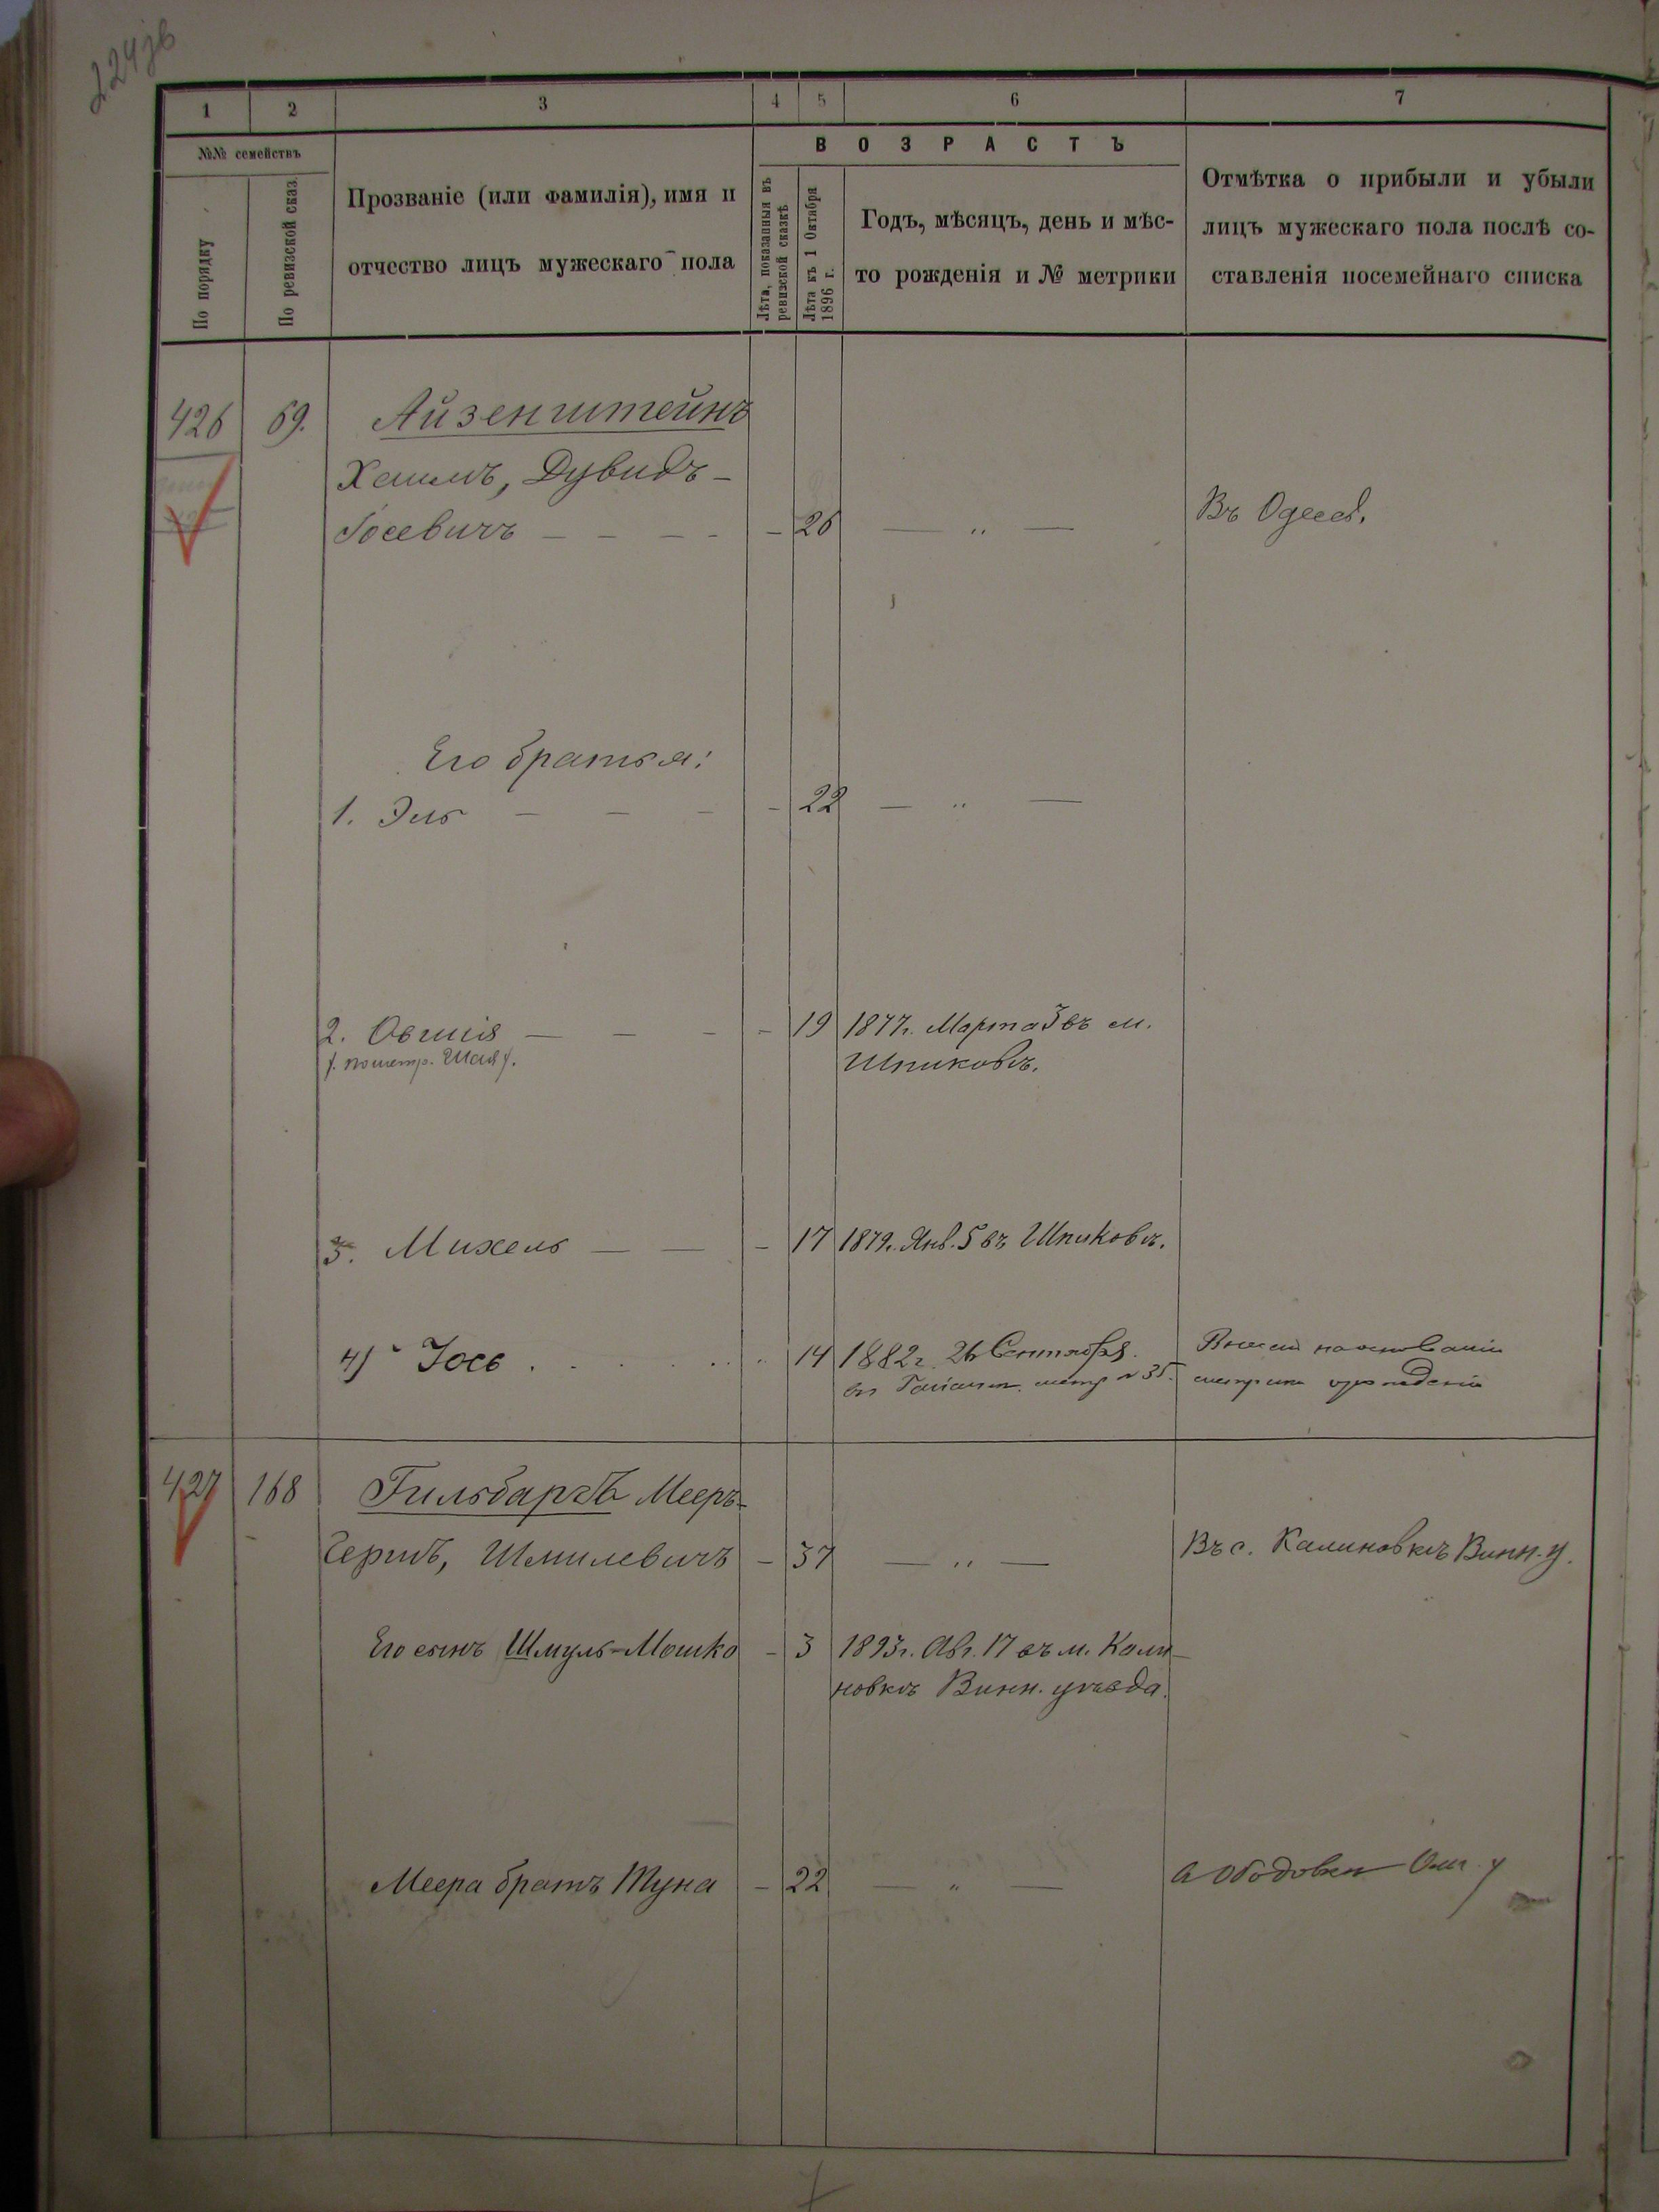 1 2 3 4 5 6 7
№№ семействъ
По порядку
По ревизской сказ.
Прозваніе (или фамилія), имя и
отчество лицъ мужескаго пола
ВОЗРАСТЪ
Лѣта, показанныя въ
ревизской сказкѣ
Лѣта къ 1 Октября
1896 г.
Годъ, мѣсяцъ, день и мѣс-
то рожденія и № метрики
Отмѣтка о прибыли и убыли
лицъ мужескаго пола послѣ со-
ставленія посемейнаго списка
426 69. Айзенштейнъ
Хаимъ, Дувидъ-
Іосевичъ - - - - - 26 — „ — Въ Одессѣ.
Его братья:
1. Эль - - - - 22 — „ —
2. Овшія — — - - 19 1877г. Марта 3 въ м.
(. по метр. Шая). Шпиковѣ.
3. Михель — — - 17 1879г. Янв. 5 въ Шпиковѣ.
4) Іось . . . . . . 14 1882г. 26 Сентября.
метр №35. метрики о рожденіи
427 168 Гильбардъ Мееръ-
Гершъ, Шмилевичъ - 37 — „ — Въ с. Калиновкѣ Винн. у.
Его сынъ Шмуль-Мошко - 3 1893г. Авг. 17 въ м. Кали-
новкѣ Винн. уѣзда.
Меера братъ Муна - 22 — „ — Ободовки у